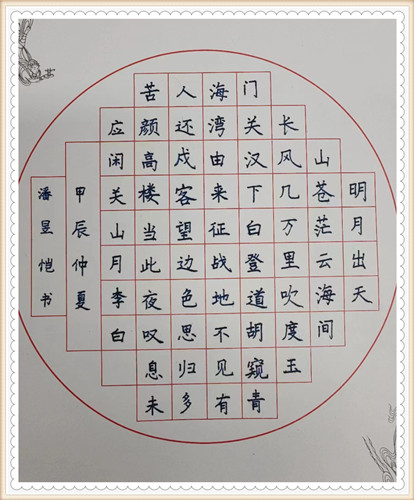 明月出天
山苍茫云海间
长风几万里吹度玉
门关汉下白登道胡窥青
海湾由来征战地不见有
人还戍客望边色思归多
苦颜高楼当此夜叹息未
应闲关山月李白
甲辰仲夏
潘昱恺书